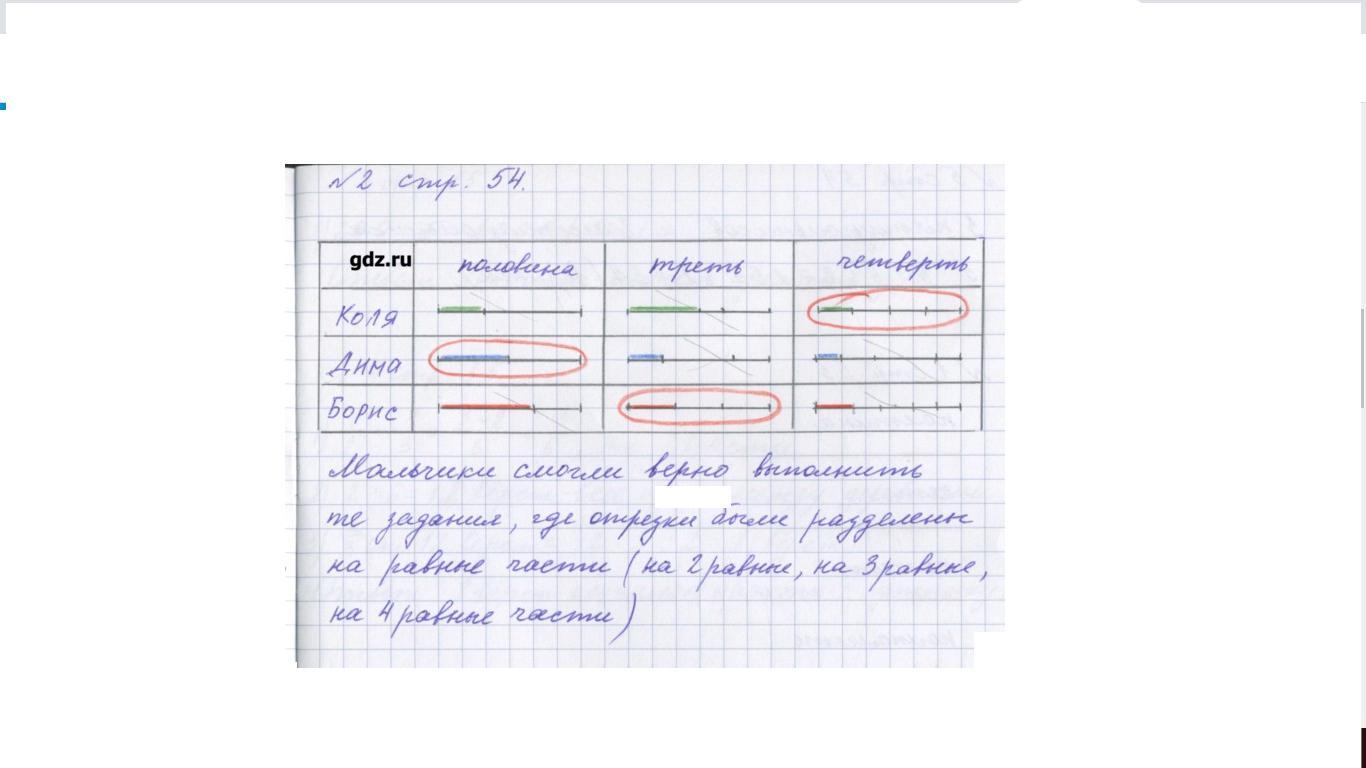 №2 стр. 54.
gdz.ru половина треть четверть
Коля
Дима
Борис
Мальчики смогли верно выполнить
те задания, где отрезки были разделены
на равные части (на 2 равные, на 3 равные,
на 4 равные части)